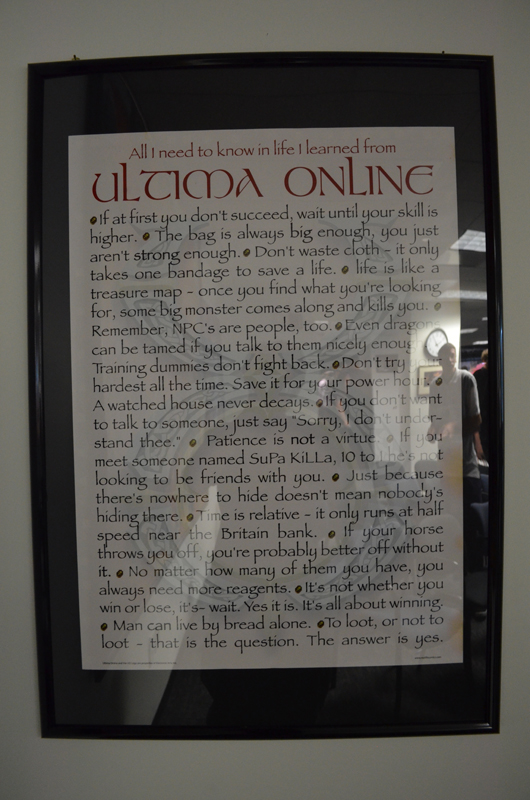 All I need to know in life I learned from
ULTIMA ONLINE
If at first you don't succeed, wait until your skill is
higher. The bag is always big enough, you just
aren't strong enough. Don't waste cloth - it only
takes one bandage to save a life. life is like a
treasure map - once you find what you're looking
for, some big monster comes along and kills you.
Remember, NPC's are people, too. Even dragons
can be tamed if you talk to them nicely enough.
Training dummies don't fight back. Don't try
hardest all the time. Save it for your power hour.
A watched house never decays. If you don't want
to talk to someone, just say "Sorry, I don't under-
stand thee." Patience is not a virtue. If you
meet someone named SuPa KiLLa, 10 to 1 he's not
looking to be friends with you. Just because
there's nowhere to hide doesn't mean nobody's
hiding there. Time is relative - it only runs at half
speed near the Britain bank. If your horse
throws you off, you're probably better off without
it. No matter how many of them you have, you
always need more reagents. It's not whether you
win or lose, it's- wait. Yes it is. It's all about winning.
Man can live by bread alone. To loot, or not to
loot - that is the question. The answer is yes.